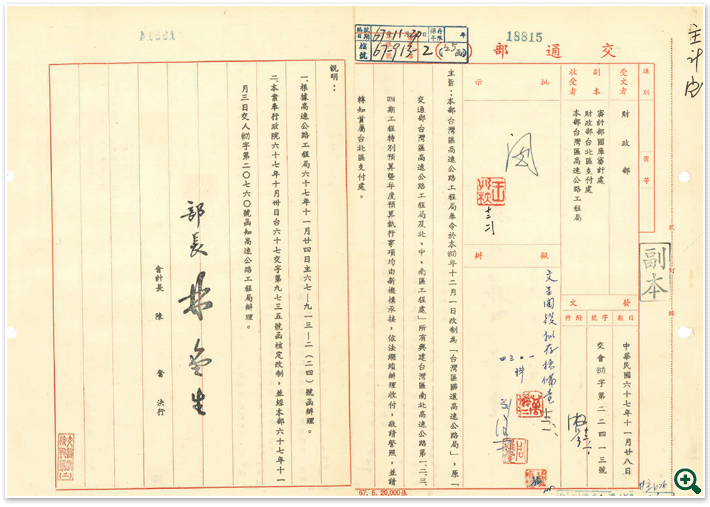 18815
交通部
主計室
67-11-30
67-913-2
速別
密等
受文者
財政部
副本
收受者
審計部國庫審計處
財政部台北區支付處
本部台灣區高速公路工程局
發文
日期
字號
附件
中華民國六十七年十一月廿八日
交會(67)字第二二四一三號
副本
批示
閱
擬辦
文呈閱後擬存檔備查
主旨：本部台灣區高速公路工程局奉令於本(67)年十二月一日改制為「台灣區國道高速公路局」，原「
交通部台灣區高速公路工程局及北、中、南區工程處」所有興建台灣區南北高速公路第一二三、
四期工程特別預算暨年度預算執行事項均由新機構承接，依法繼續辦理收付，敬請詧照，並請
轉知貴屬台北區支付處。
67. 5. 20,000張
說明：
一、根據高速公路工程局六十七年十一月廿四日主六七—九一三—二(二四)號函辦理。
二、本案奉行政院六十七年十月卅日台六十七交字第九七三五號函核定改制，並經本部六十七年十一
月三日交人(67)字第二〇七六〇號函知高速公路工程局辦理。
部長 林金生
會計長 陳 奮 決行